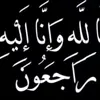 لله وَإِنَّا إِلَيْهِ
رَاجِعُونَ